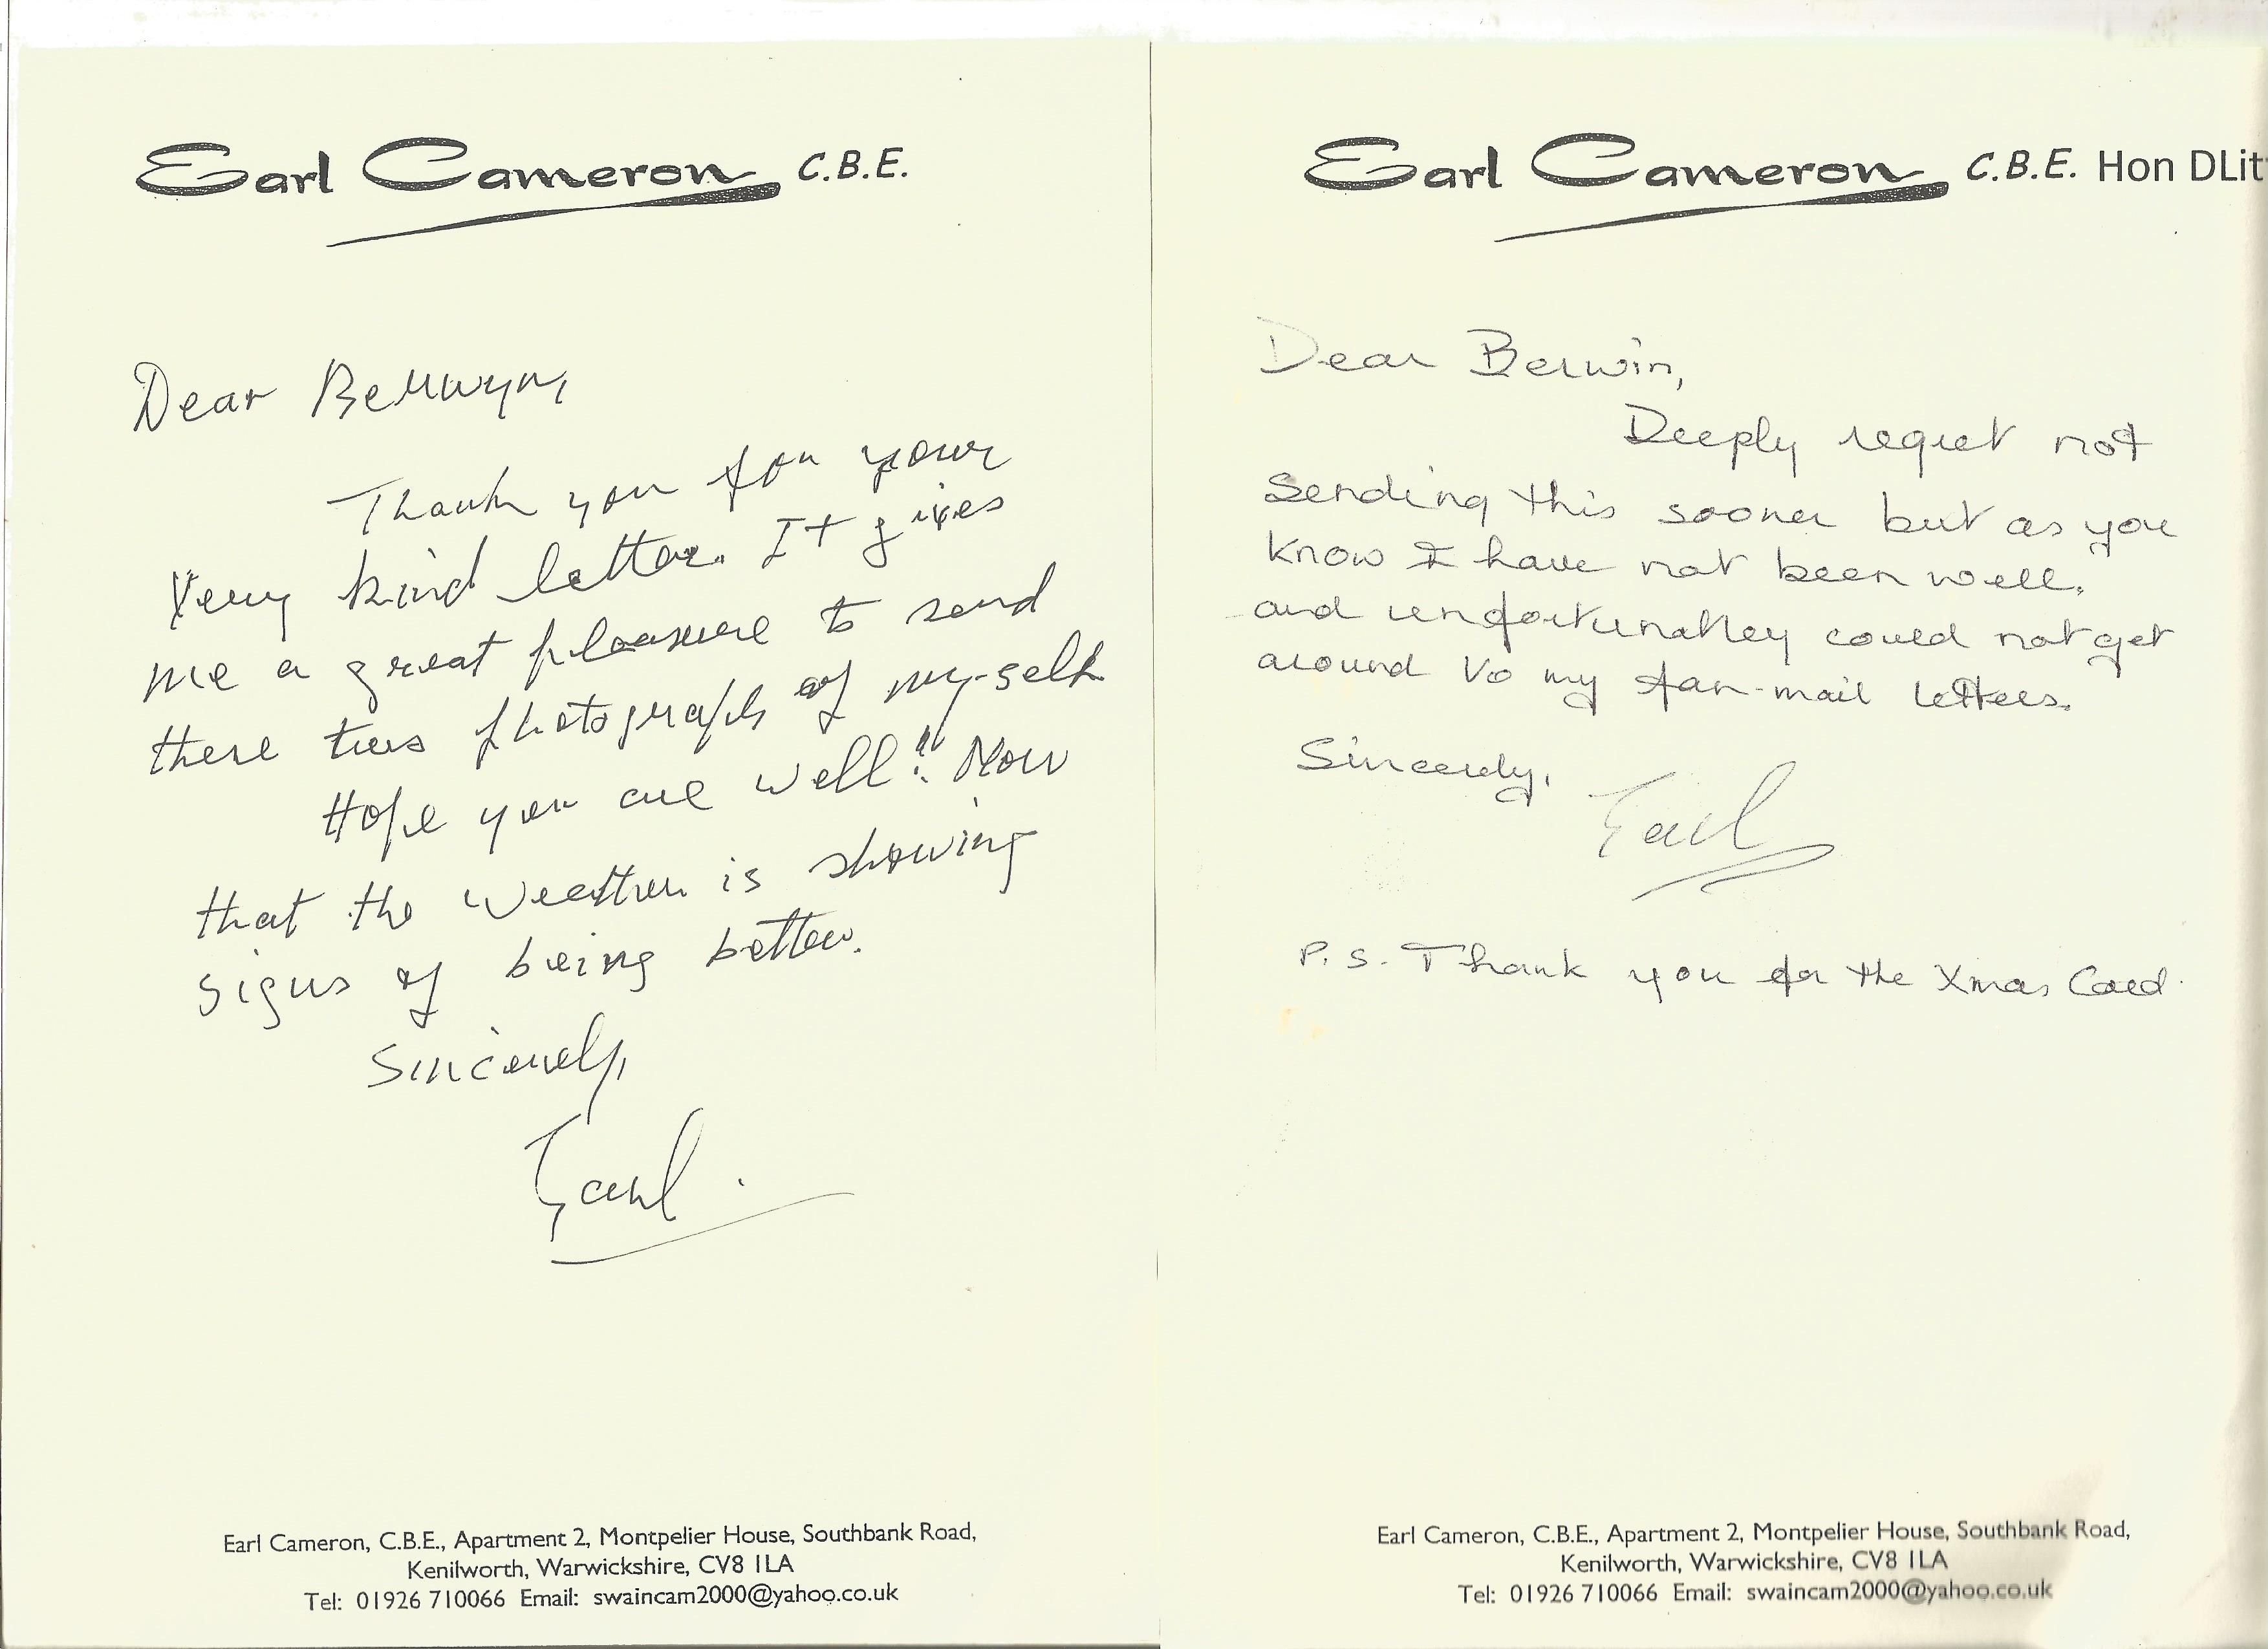 Earl Cameron C.B.E.
Dear Berwyn,
Thank you for your
Very kind letter. It gives
me a great pleasure to send
these two photographs of my-self.
Hope you are well!! Now
that the weather is showing
signs of being better.
Sincerely,
Earl.
Earl Cameron, C.B.E., Apartment 2, Montpelier House, Southbank Road,
Kenilworth, Warwickshire, CV8 1LA
Tel: 01926 710066 Email: swaincam2000@yahoo.co.uk
Earl Cameron C.B.E. Hon DLit
Dear Berwin,
Deeply regret not
sending this sooner but as you
know I have not been well.
and unfortunatley could not get
around to my fan-mail letters.
Sincerely,
Earl
P.S. Thank you for the Xmas Card.
Earl Cameron, C.B.E., Apartment 2, Montpelier House, Southbank Road,
Kenilworth, Warwickshire, CV8 1LA
Tel: 01926 710066 Email: swaincam2000@yahoo.co.uk